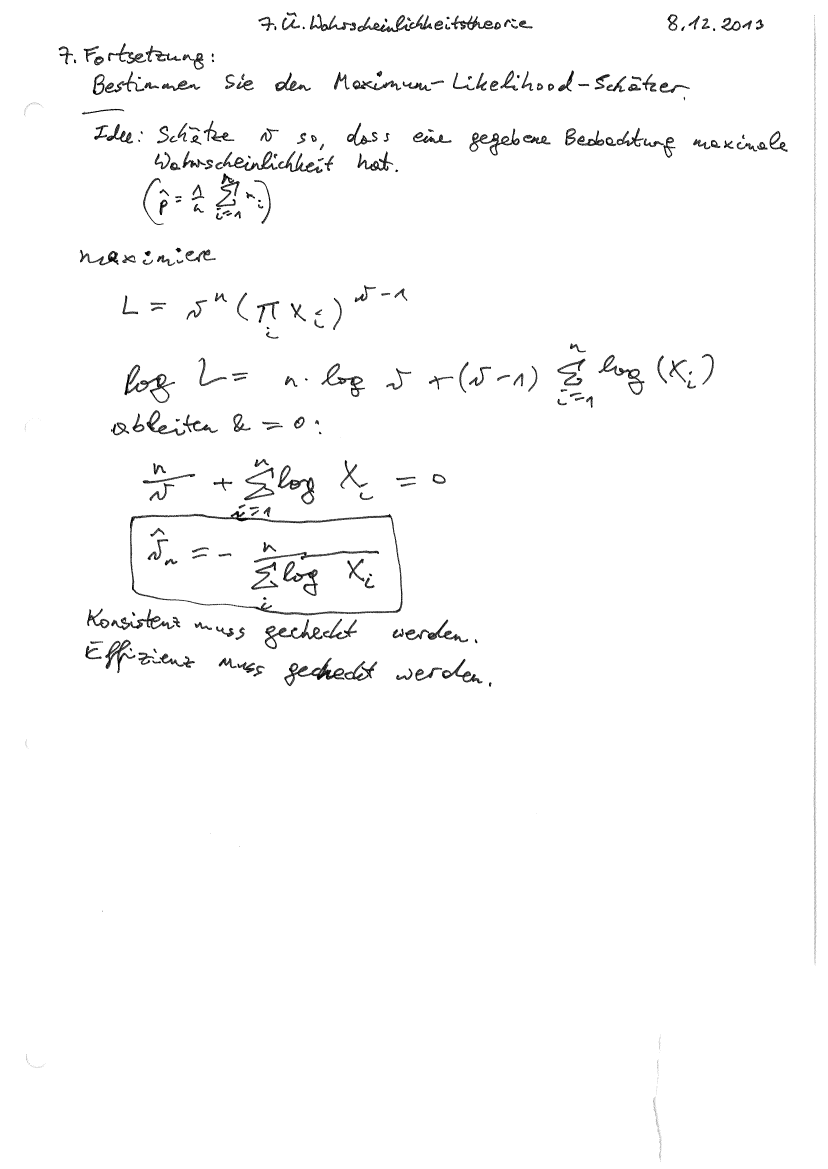 7. Ü. Wahrscheinlichkeitstheorie 8.12.2013
7. Fortsetzung:
Bestimmen Sie den Maximum-Likelihood-Schätzer.
Idee: Schätze ϑ so, dass eine gegebene Beobachtung maximale
Wahrscheinlichkeit hat.
(p̂ = 1/n ∑_{i=1}^n x_i)
maximiere
L = ϑ^n (∏_i X_i)^{ϑ-1}
log L = n · log ϑ + (ϑ-1) ∑_{i=1}^n log (X_i)
ableiten & = 0:
n/ϑ + ∑_{i=1}^n log X_i = 0
ϑ̂_n = - n / (∑_i log X_i)
Konsistenz muss gecheckt werden.
Effizienz muss gecheckt werden.